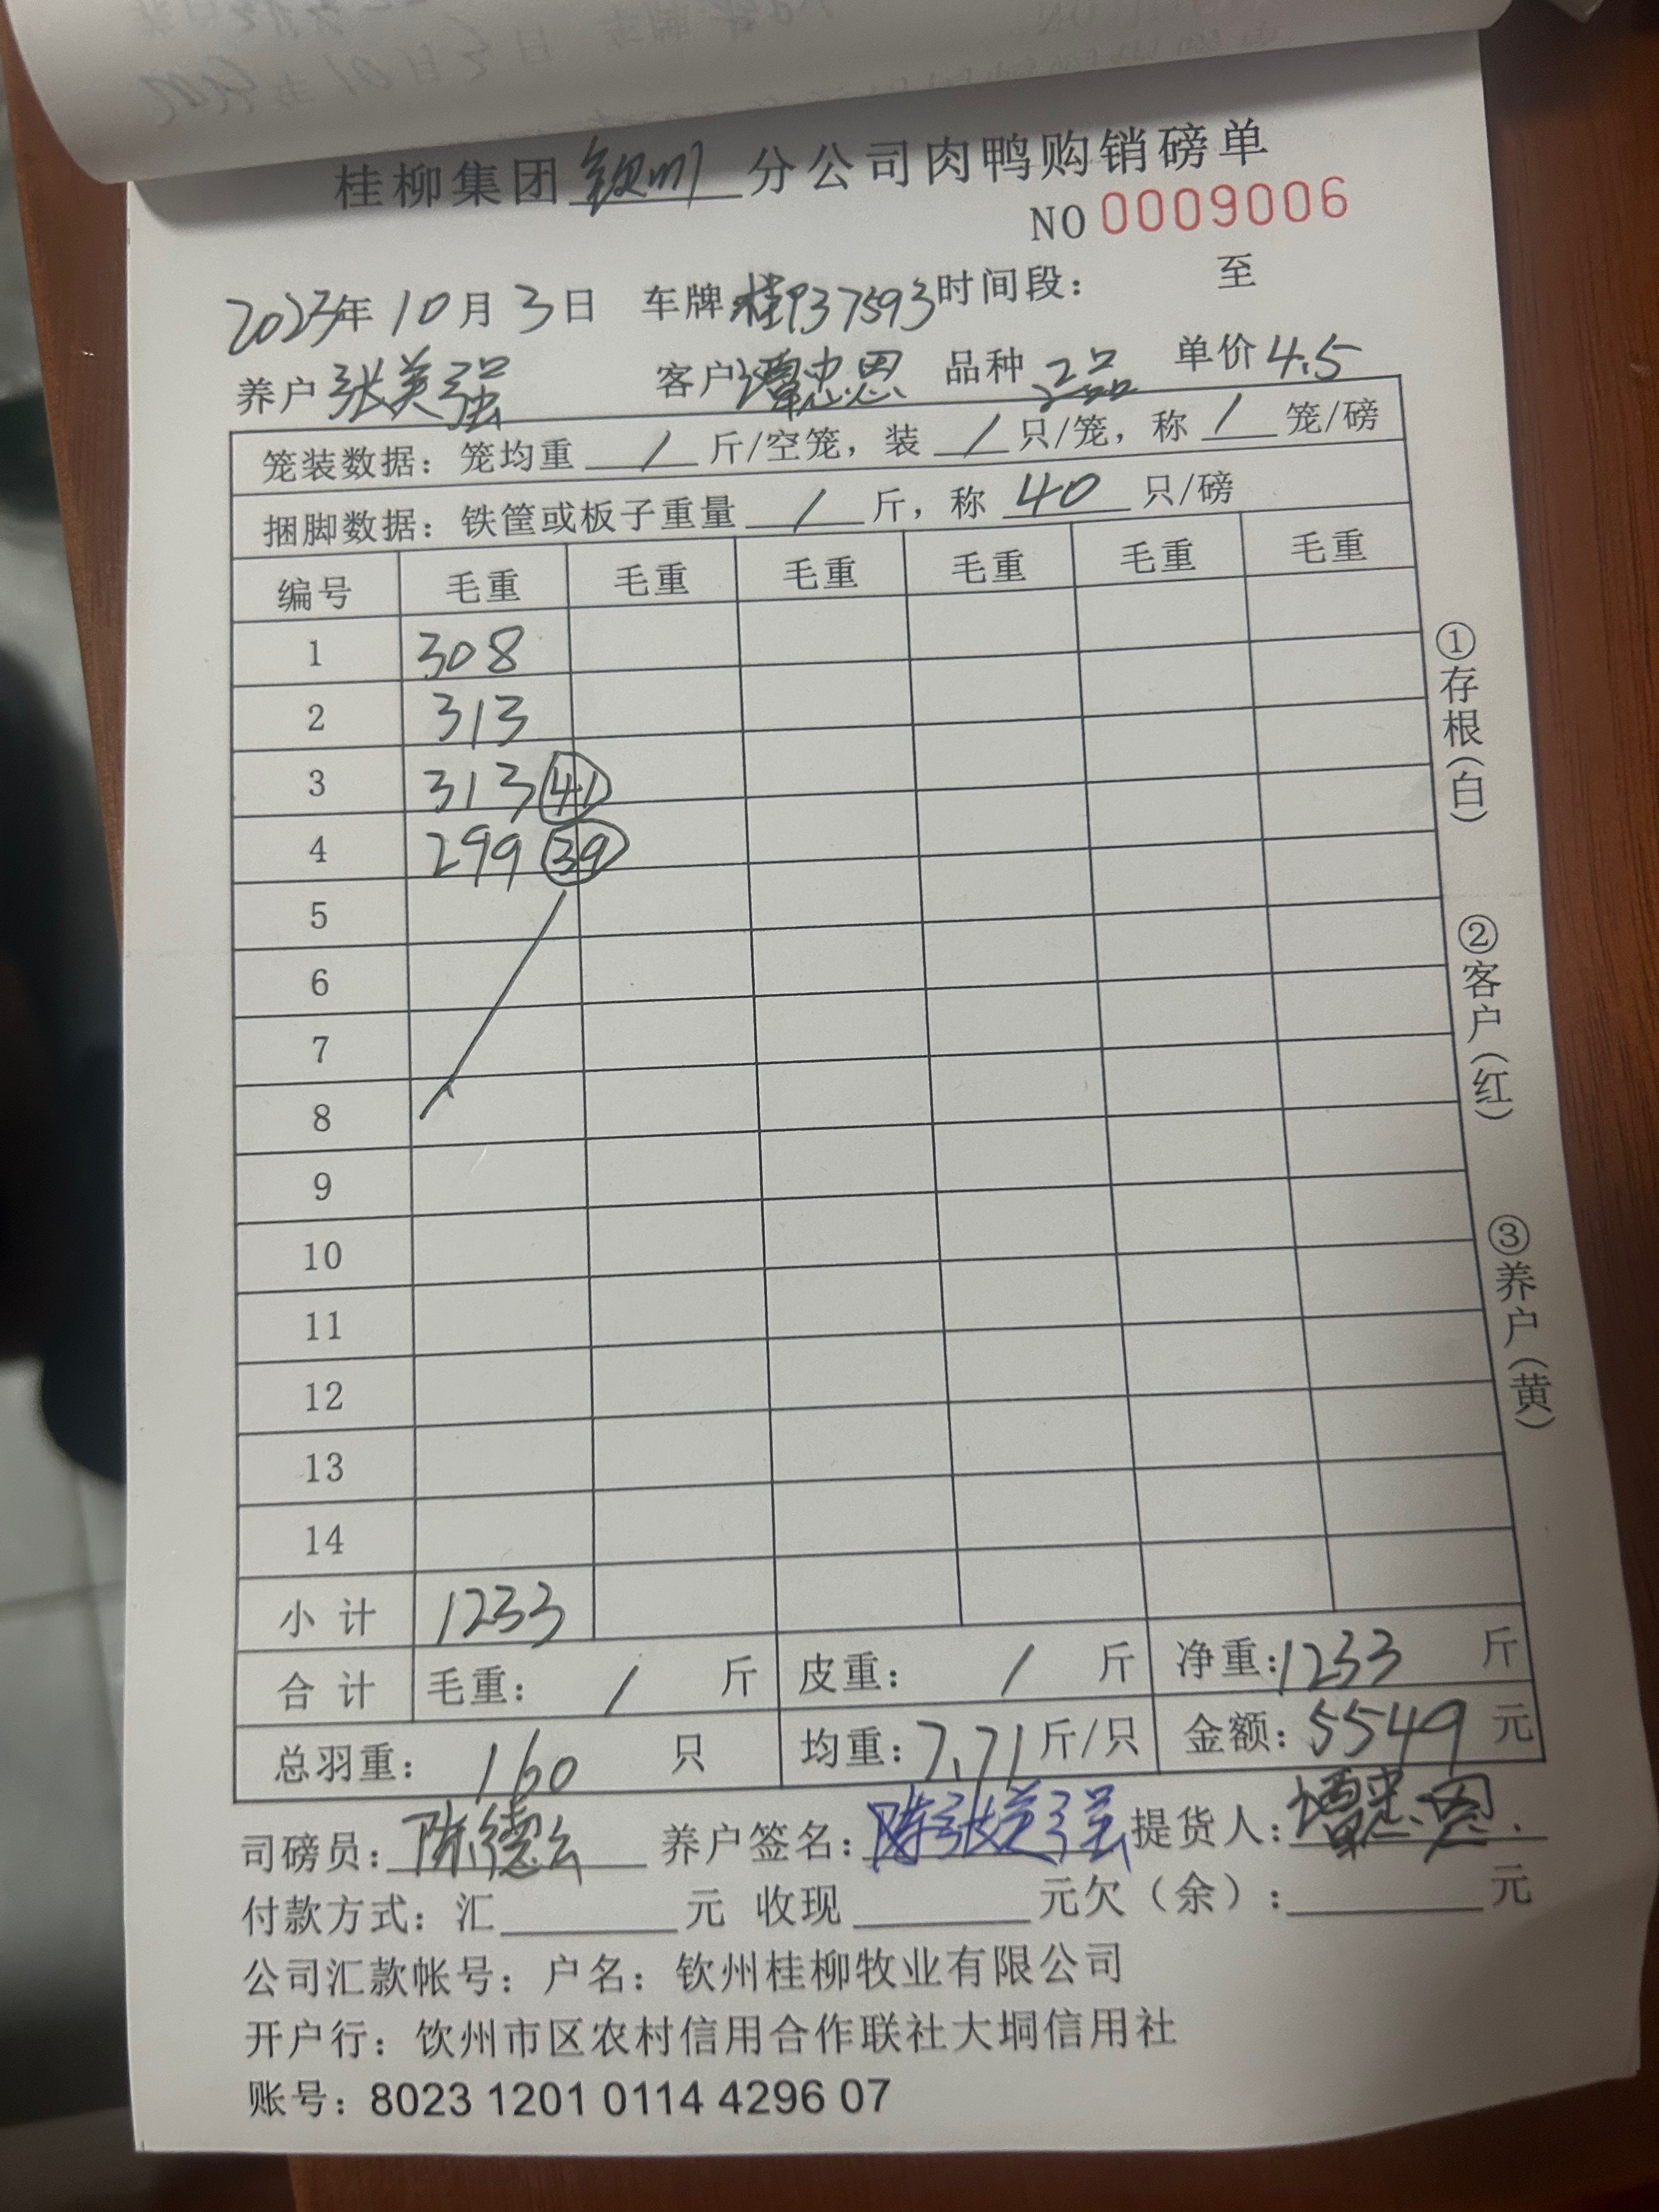 桂柳集团钦州分公司肉鸭购销磅单
NO 0009006
2023年10月3日 车牌桂P37593时间段： 至
养户张美强 客户谭忠恩 品种2品 单价4.5
笼装数据：笼均重 / 斤/空笼，装 / 只/笼，称 / 笼/磅
捆脚数据：铁筐或板子重量 / 斤，称 40 只/磅
编号 毛重 毛重 毛重 毛重 毛重 毛重
1 308
2 313
3 313 41
4 299 39
5
6
7
8
9
10
11
12
13
14
小计 1233
合计 毛重： / 斤 皮重： / 斤 净重：1233 斤
总羽重：160 只 均重：7.71斤/只 金额：5549元
司磅员：陈德云 养户签名：张美强 提货人：谭忠恩
付款方式：汇 元 收现 元欠（余）： 元
公司汇款帐号：户名：钦州桂柳牧业有限公司
开户行：钦州市区农村信用合作联社大垌信用社
账号：8023 1201 0114 4296 07
①存根（白）
②客户（红）
③养户（黄）